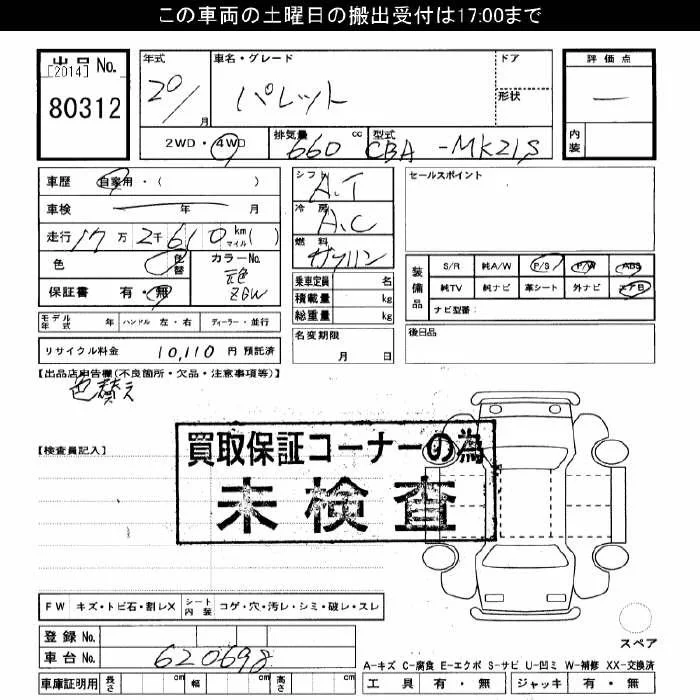 この車両の土曜日の搬出受付は17:00まで
出品 No.
[2014]
80312
年式 20/ 月
車名・グレード パレット
ドア
形状
2WD・4WD
排気量 660 cc
型式 CBA-MK21S
評価点
—
内装
車歴 自家用・( )
車検 年 月
走行 17万2千610 km マイル( )
色 色替
カラーNo. 元色 ZGW
保証書 有・無
シフト A.T
冷房 A.C
燃料 ガソリン
乗車定員 名
積載量 kg
総重量 kg
セールスポイント
装備品
S/R 純A/W P/S P/W ABS
純TV 純ナビ 革シート 外ナビ エアB
ナビ型番:
モデル年式 年 ハンドル 左・右 ディーラー・並行
名変期限
月 日
後日品
リサイクル料金 10,110 円 預託済
【出品店申告欄(不良箇所・欠品・注意事項等)】
色替え
【検査員記入】
買取保証コーナーの為
未検査
FW キズ・トビ石・割レX シート内装 コゲ・穴・汚レ・シミ・破レ・スレ
スペア
登録 No.
車台 No. 620698
A-キズ C-腐食 E-エクボ S-サビ U-凹ミ W-補修 XX-交換済
車庫証明用 長さ cm 幅 cm 高さ cm
工具 有・無 ジャッキ 有・無